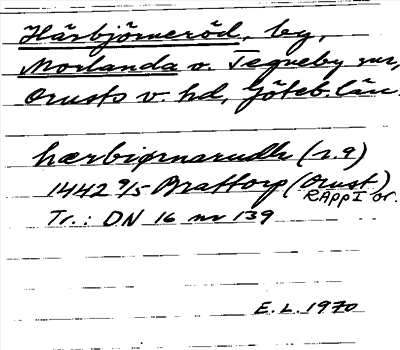 Härbjörneröd, by,
Morlanda o. Tegneby snr,
Orusts v. hd, Göteb. län.
hærbiørnarudh (r. 9)
1442 9/5 Brattorp (Orust)
RAppI or.
Tr.: DN 16 nr 139
E.L. 1970